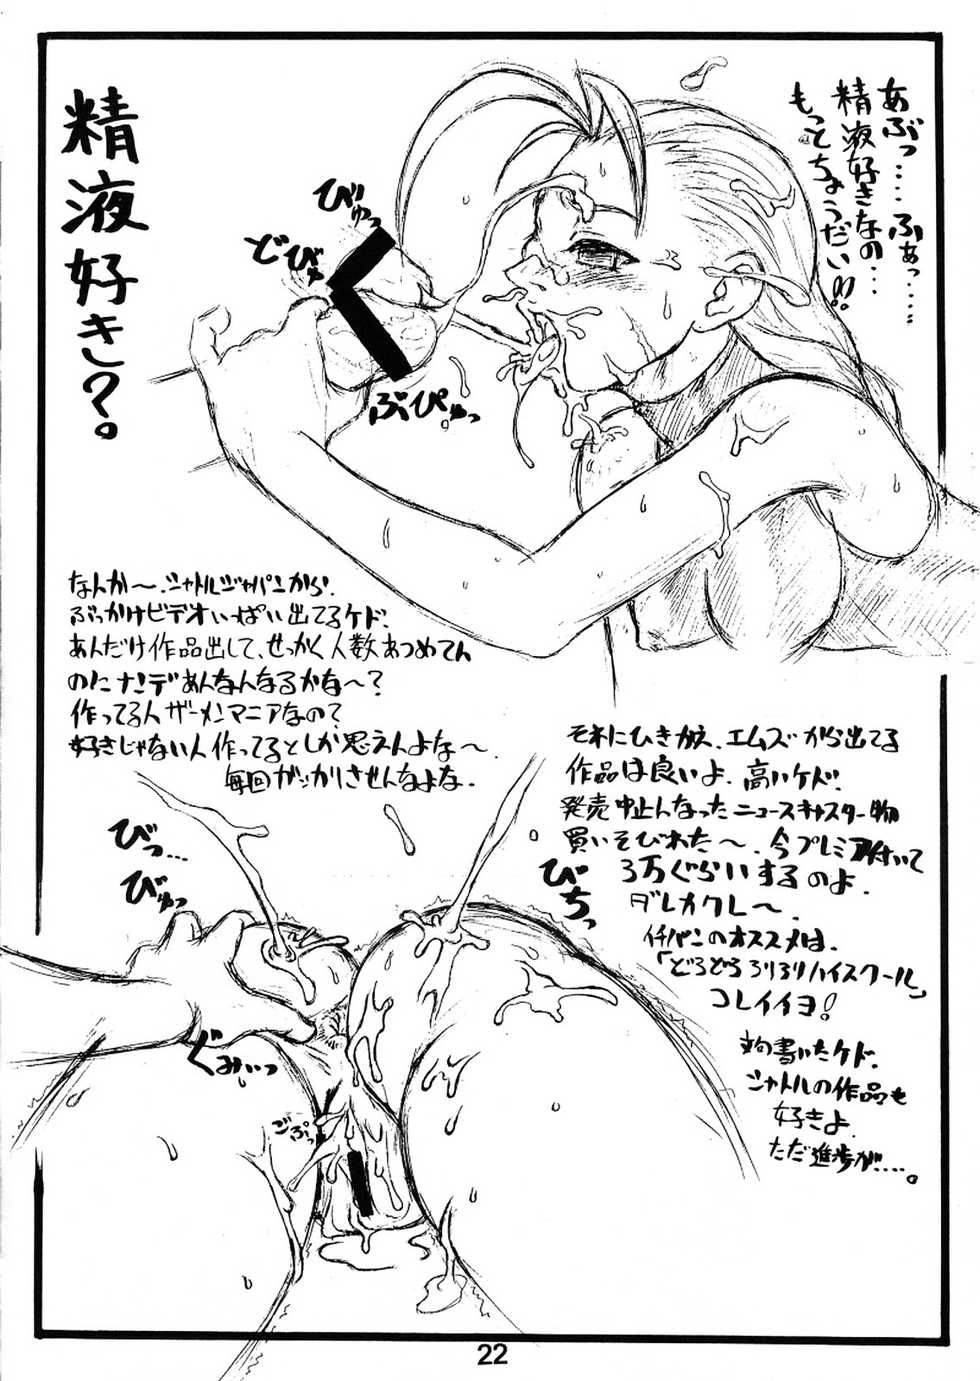 あぶっ‥‥ふぁっ‥‥
精液好きなの‥
もっとちょうだい!!
精液好き?。
びゅっ
どびゅ
ぶぴゅっ
なんか〜、シャトルジャパンから、
ぶっかけビデオいっぱい出てるケド、
あんだけ作品出して、せっかく人数あつめてん
のにナンデあんなんなるかな〜?
作ってる人ザーメンマニアなの?
好きじゃない人作ってるとしか思えんよな〜
毎回ガッカリさせんなよな.
モネにひきかえ、エムズから出てる
作品は良いよ.高いケド.
発売中止んなったニュースキャスター物
買いそびれた〜、今プレミア付いて
3万ぐらいするのよ.
ダレカクレ〜.
イチバンのオススメは、
「どろどろろりろりハイスクール」
コレイイヨ!
書いたケド、
シャトルの作品も
好きよ.
ただ進歩が‥‥。
びっ…
びゅっ
びちっ
ぐみぃっ
ごぷっ
22